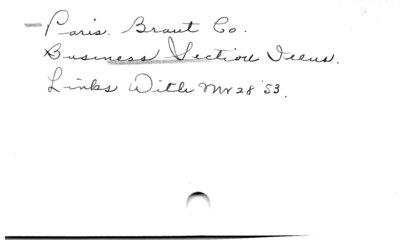 Paris. Brant Co.
Business Section Illus.
Links With Mr 28 '53.